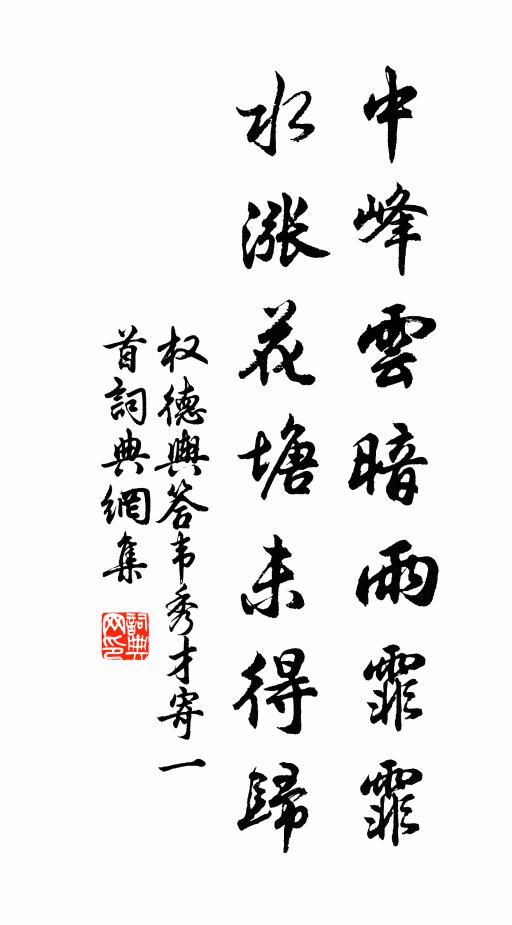 中峰雲暗雨霏霏
水漲花塘未得歸
权德輿答韦秀才寄一
首詞典網集
詞典
网印